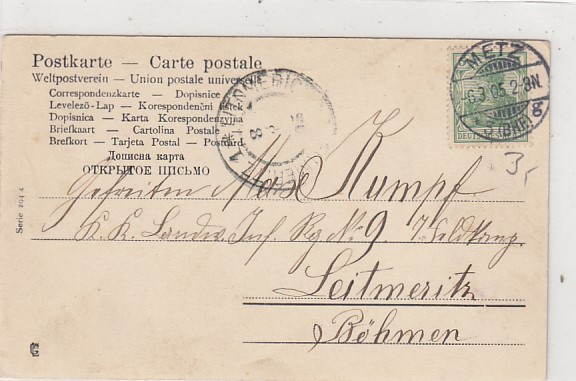 Postkarte — Carte postale
Weltpostverein — Union postale universelle
Correspondenzkarte — Dopisnice
Levelező-Lap — Korespondenční lístek
Dopisnica — Karta Korespondencyjna
Briefkaart — Cartolina Postale
Brefkort — Tarjeta Postal — Postcard
Дописна карта
ОТКРЫТОЕ ПІСЬМО
METZ
6.3.05. 2-3N.
g
(BHF)
DEUT
LEITMERIC
8
3,-
Gefreiten Max Kumpf
K. K. Landw. Inf. Rg. No 9. 7. Feldkomp.
Leitmeritz
Böhmen
Serie 294 4
G